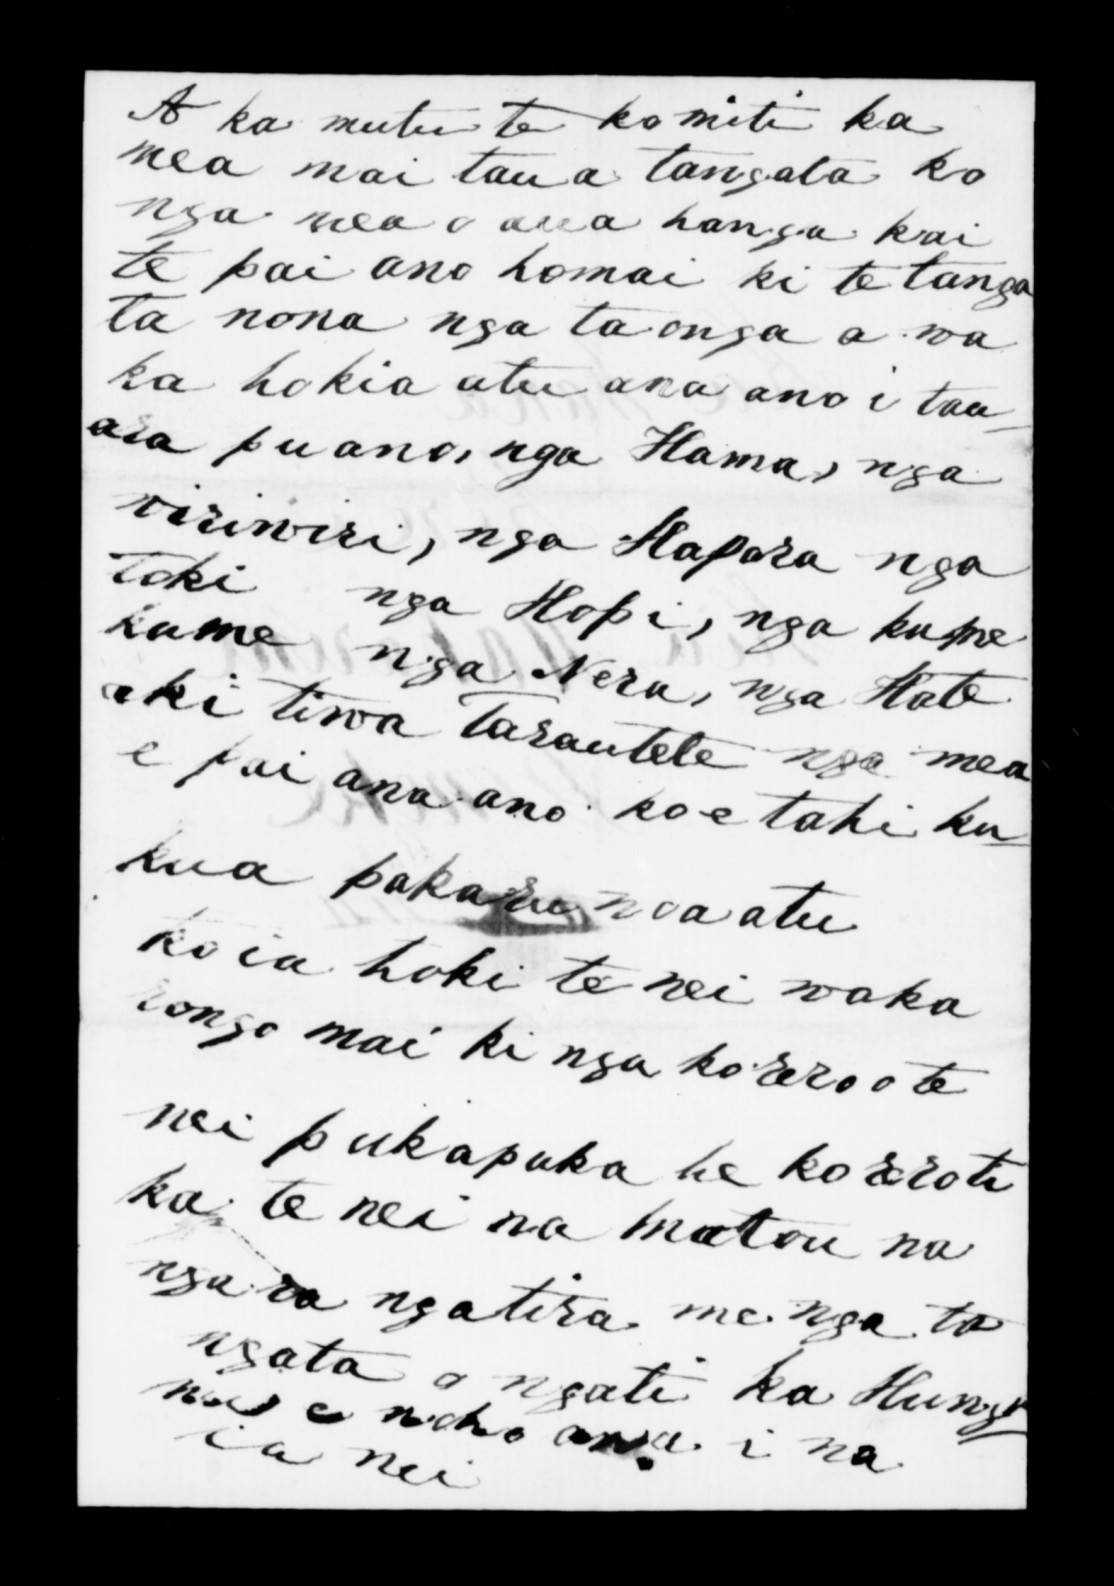 A ka mutu te komiti ka
mea mai taua tangata ko
nga mea o aua hanga kai
te pai ano homai ki te tanga
ta nona nga taonga a wa
ka hokia atu ana ano i tau-
ara pu ano, nga Hama, nga
wiriwiri, nga Hapara nga
toki nga Hopi, nga kupe
kume nga Nera, nga Hate
aki tiwa Tarautete nga mea
e pai ana ano ko e tahi ku-
kua pakaru noa atu
ko ia hoki te nei waka
rongo mai ki nga korero o te
nei pukapuka he korero ti
ka te nei na matou na
nga ra ngatira me nga ta
ngata o ngati ka Hungu
nu e noho ana i na
ia nei